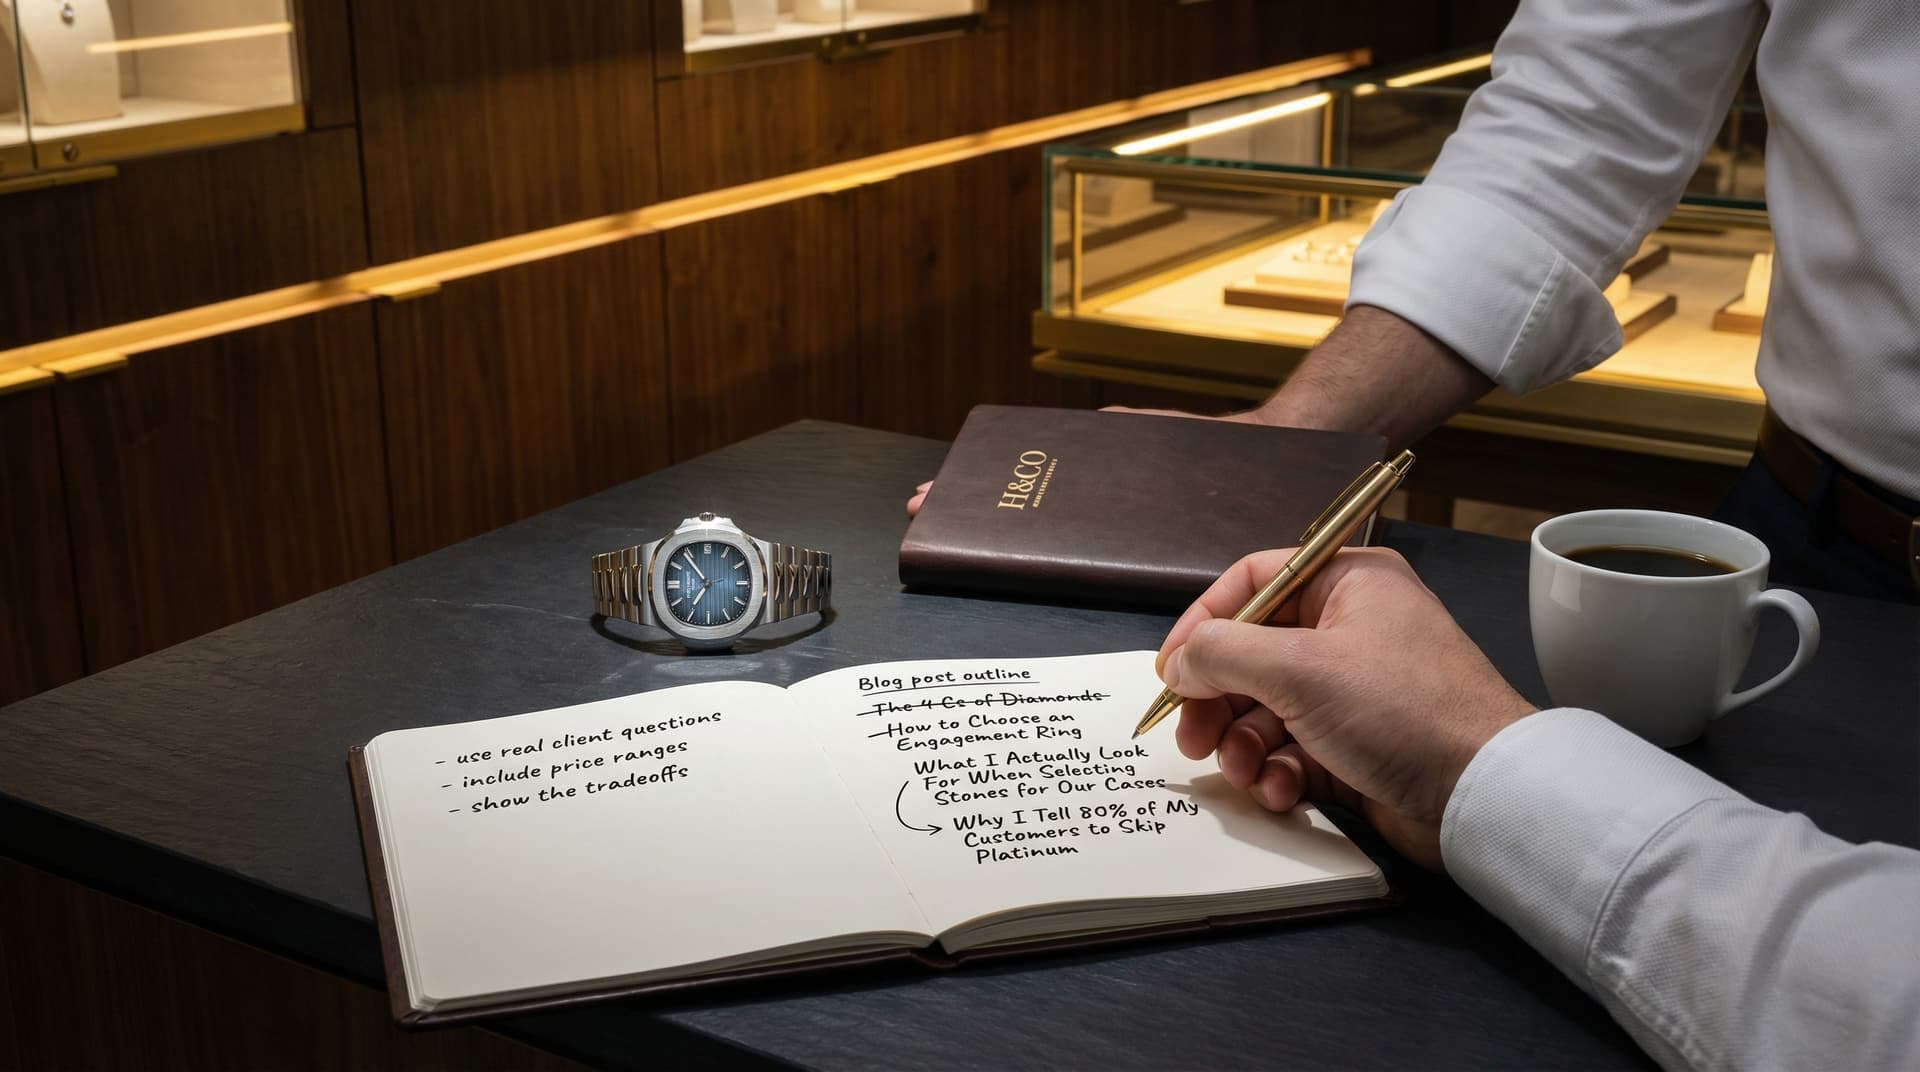 - use real client questions
- include price ranges
- show the tradeoffs
Blog post outline
The 4 Cs of Diamonds
How to Choose an
Engagement Ring
What I Actually Look
For When Selecting
Stones for Our Cases
Why I Tell 80% of My
Customers to Skip
Platinum
H&CO